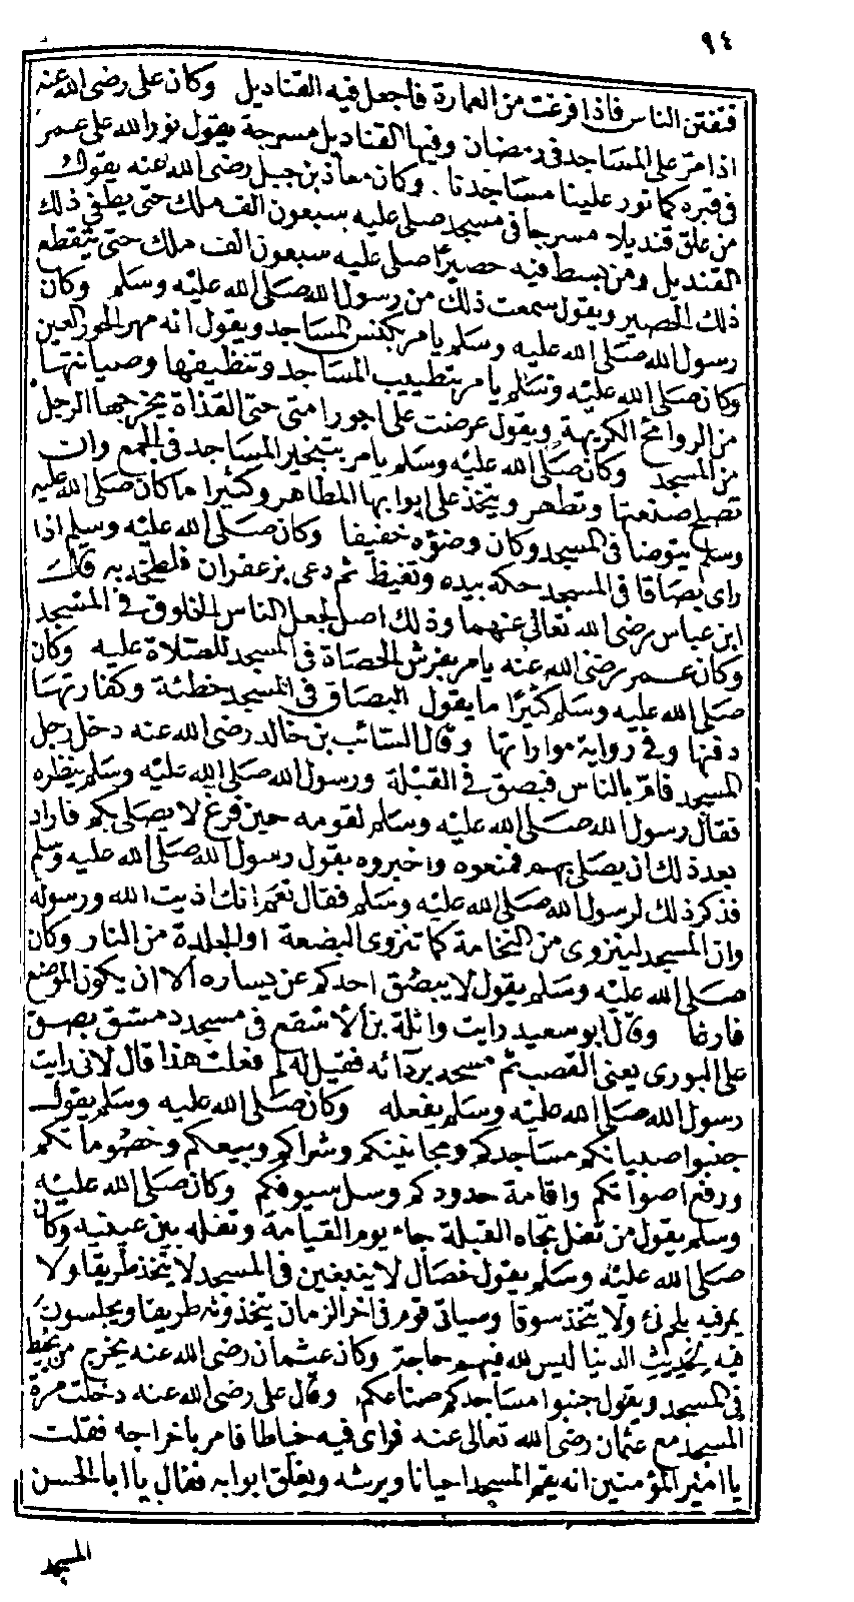 ٩٤
فتفتن الناس فاذا فرغت من العمارة فاجعل فيه القناديل وكان على رضى الله عنه
اذا مر على المساجد فى رمضان وفيها القناديل مسرجة يقول نور الله على عمر
فى قبره كما نور علينا مساجدنا . وكان معاذ بن جبل رضى الله عنه يقول
من علق قنديلا مسرجا فى مسجد صلى عليه سبعون الف ملك حتى يطفى ذلك
القنديل ومن بسط فيه حصيرا صلى عليه سبعون الف ملك حتى يتقطع
ذلك الحصير ويقول سمعت ذلك من رسول الله صلى الله عليه وسلم وكان
رسول الله صلى الله عليه وسلم يامر بكنس المساجد ويقول انه مهر الحور العين
وكان صلى الله عليه وسلم يامر بتطييب المساجد وتنظيفها وصيانتها
من الروائح الكريهة ويقول عرضت على اجور امتى حتى القذاة يخرجها الرجل
من المسجد وكان صلى الله عليه وسلم يامر بتبخير المساجد فى الجمع وان
تصلح صنعتها وتطهر ويتخذ على ابوابها المطاهر وكثيرا ما كان صلى الله عليه
وسلم يتوضا فى المسجد وكان وضوؤه خفيفا وكان صلى الله عليه وسلم اذا
راى بصاقا فى المسجد حكه بيده وتغيظ ثم دعى بزعفران فلطخه به قال
ابن عباس رضى الله تعالى عنهما وذلك اصل لجعل الناس الخلوق فى المسجد
وكان عمر رضى الله عنه يامر بفرش الحصاة فى المسجد للصلاة عليه وكان
صلى الله عليه وسلم كثيرا ما يقول البصاق فى المسجد خطئة وكفارتها
دفنها وفى رواية مواراتها وقال السائب بن خالد رضى الله عنه دخل رجل
المسجد فام بالناس فبصق فى القبلة ورسول الله صلى الله عليه وسلم ينظره
فقال رسول الله صلى الله عليه وسلم لقومه حين فرغ لا يصلى بكم فاراد
بعد ذلك ان يصلى بهم فمنعوه واخبروه بقول رسول الله صلى الله عليه وسلم
فذكر ذلك لرسول الله صلى الله عليه وسلم فقال نعم انك اذيت الله ورسوله
وان المسجد لينزوى من النخامة كما تنزوى البضعة او الجلدة من النار وكان
صلى الله عليه وسلم يقول لا يبصق احدكم عن يساره الا ان يكون الموضع
فارغا وقال ابو سعيد رايت واثلة بن الاسقع فى مسجد دمشق بصق
على البورى يعنى القصب ثم مسحه بردائه فقيل له لم فعلت هذا قال لانى رايت
رسول الله صلى الله عليه وسلم يفعله وكان صلى الله عليه وسلم يقول
جنبوا صبيانكم مساجدكم ومجانينكم وشراكم وبيعكم وخصوماتكم
ورفع اصواتكم واقامة حدودكم وسل سيوفكم وكان صلى الله عليه
وسلم يقول من تفل تجاه القبلة جاء يوم القيامة وتفله بين عينيه وكان
صلى الله عليه وسلم يقول خصال لا ينبغين فى المسجد لا يتخذ طريقا ولا
يمر فيه بلحم نئ ولا يتخذ سوقا وسياتى قوم فى اخر الزمان يتخذونه طريقا ويجلسون
فيه لحديث الدنيا ليس لله فيهم حاجة وكان عثمان رضى الله عنه يخرج من يخيط
فى المسجد ويقول جنبوا مساجدكم صناعكم وقال على رضى الله عنه دخلت مرة
المسجد مع عثمان رضى الله تعالى عنه فراى فيه خياطا فامر باخراجه فقلت
يا امير المؤمنين انه يقم المسجد احيانا ويرشه ويغلق ابوابه فقال يا ابا الحسن
المسجد